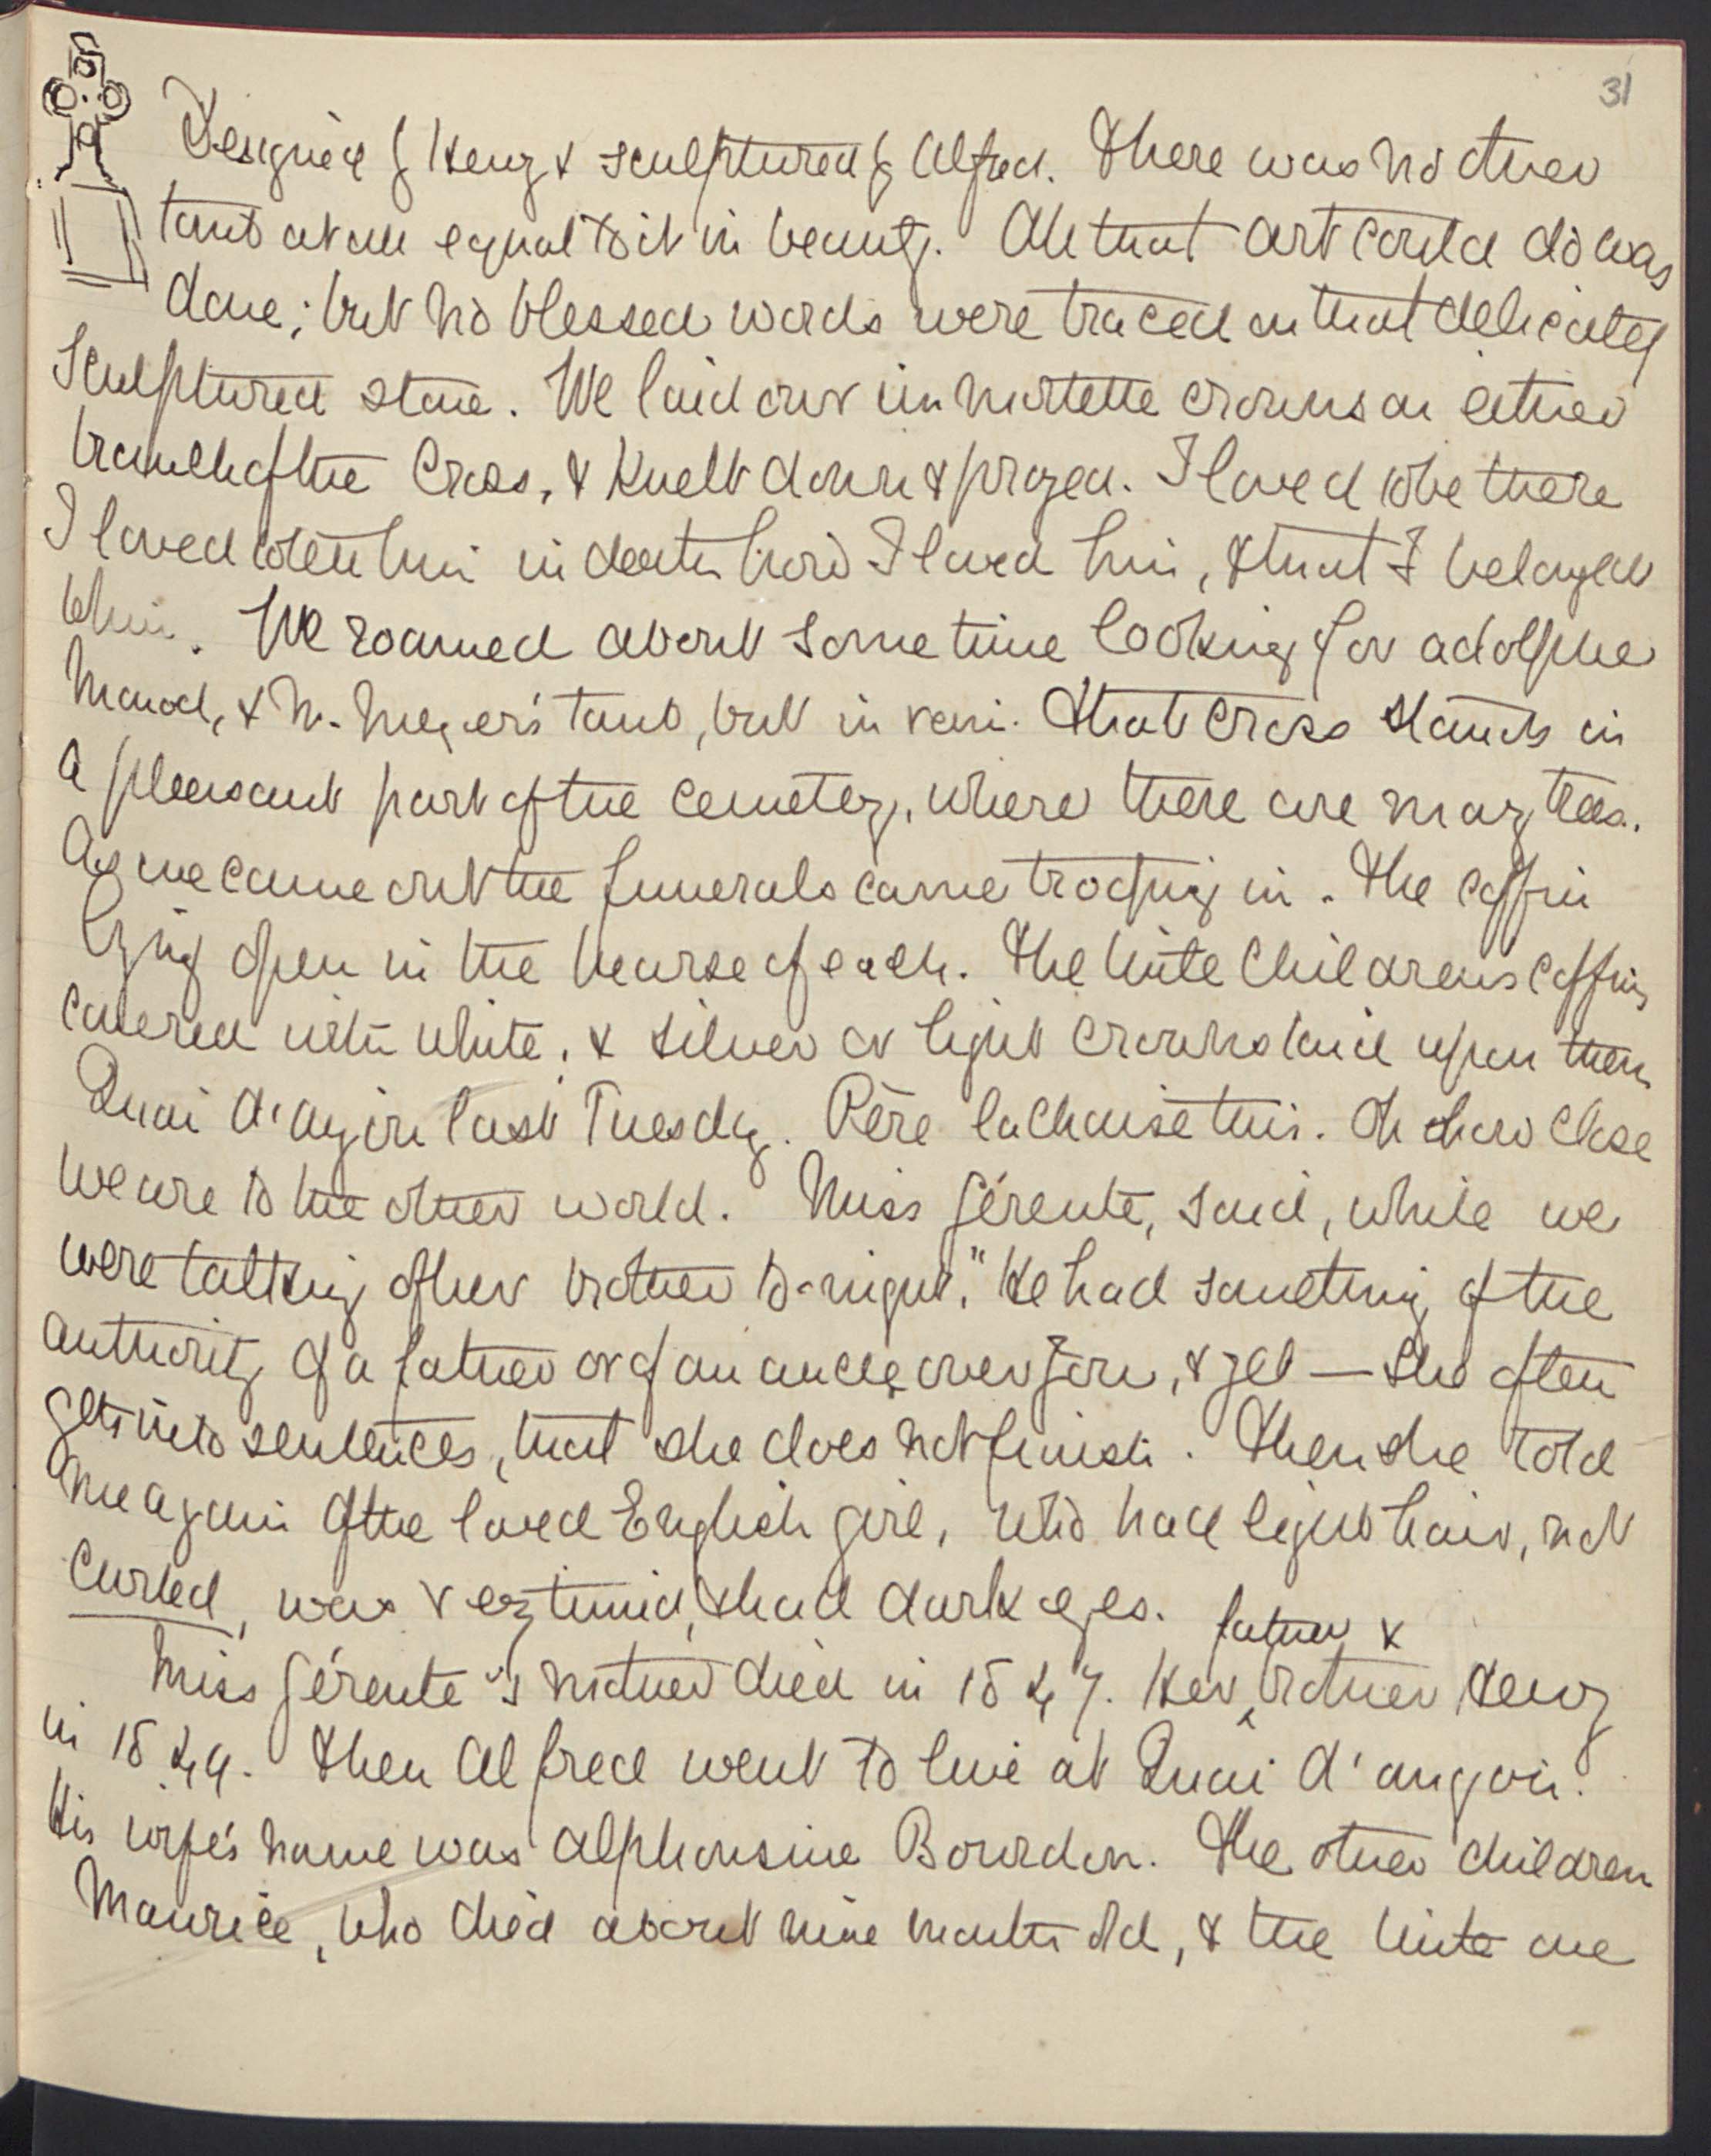 31
Designed by Henry & sculptured by Alfred. There was no other
tomb at all equal to it in beauty. All that art could do was
done; but no blessed words were traced on that delicately
sculptured stone. We laid our immortelle crowns on either
branch of the Cross, & knelt down & prayed. I loved to be there
I loved to tell him in death how I loved him, & that I belonged
to him. We roamed about some time looking for Adolphe
Monod, & M. Meyer's tomb, but in vain. That Cross stands in
a pleasant part of the cemetery, where there are many trees.
As we came out the funerals came trooping in. The coffin
lying open in the hearse of each. The little childrens coffins
covered with white, & silver or light crowns laid upon them
Quai d'Anjou last Tuesday. Père la Chaise this. Oh how close
we are to the other world. Miss Gérente, said, while we
were talking of her brother to-night, "He had something of the
authority of a father or of an uncle over you, & yet — She often
gets into sentences, that she does not finish. Then she told
me again of the loved English girl, who had light hair, not
curled, was very timid, & had dark eyes.
father &
Miss Gérente's mother died in 1847. Her brother Henry
in 1849. Then Alfred went to live at Quai d'Anjou.
His wife's name was Alphonsine Bourdon. The other children
Maurice, who died about nine months old, & the little one